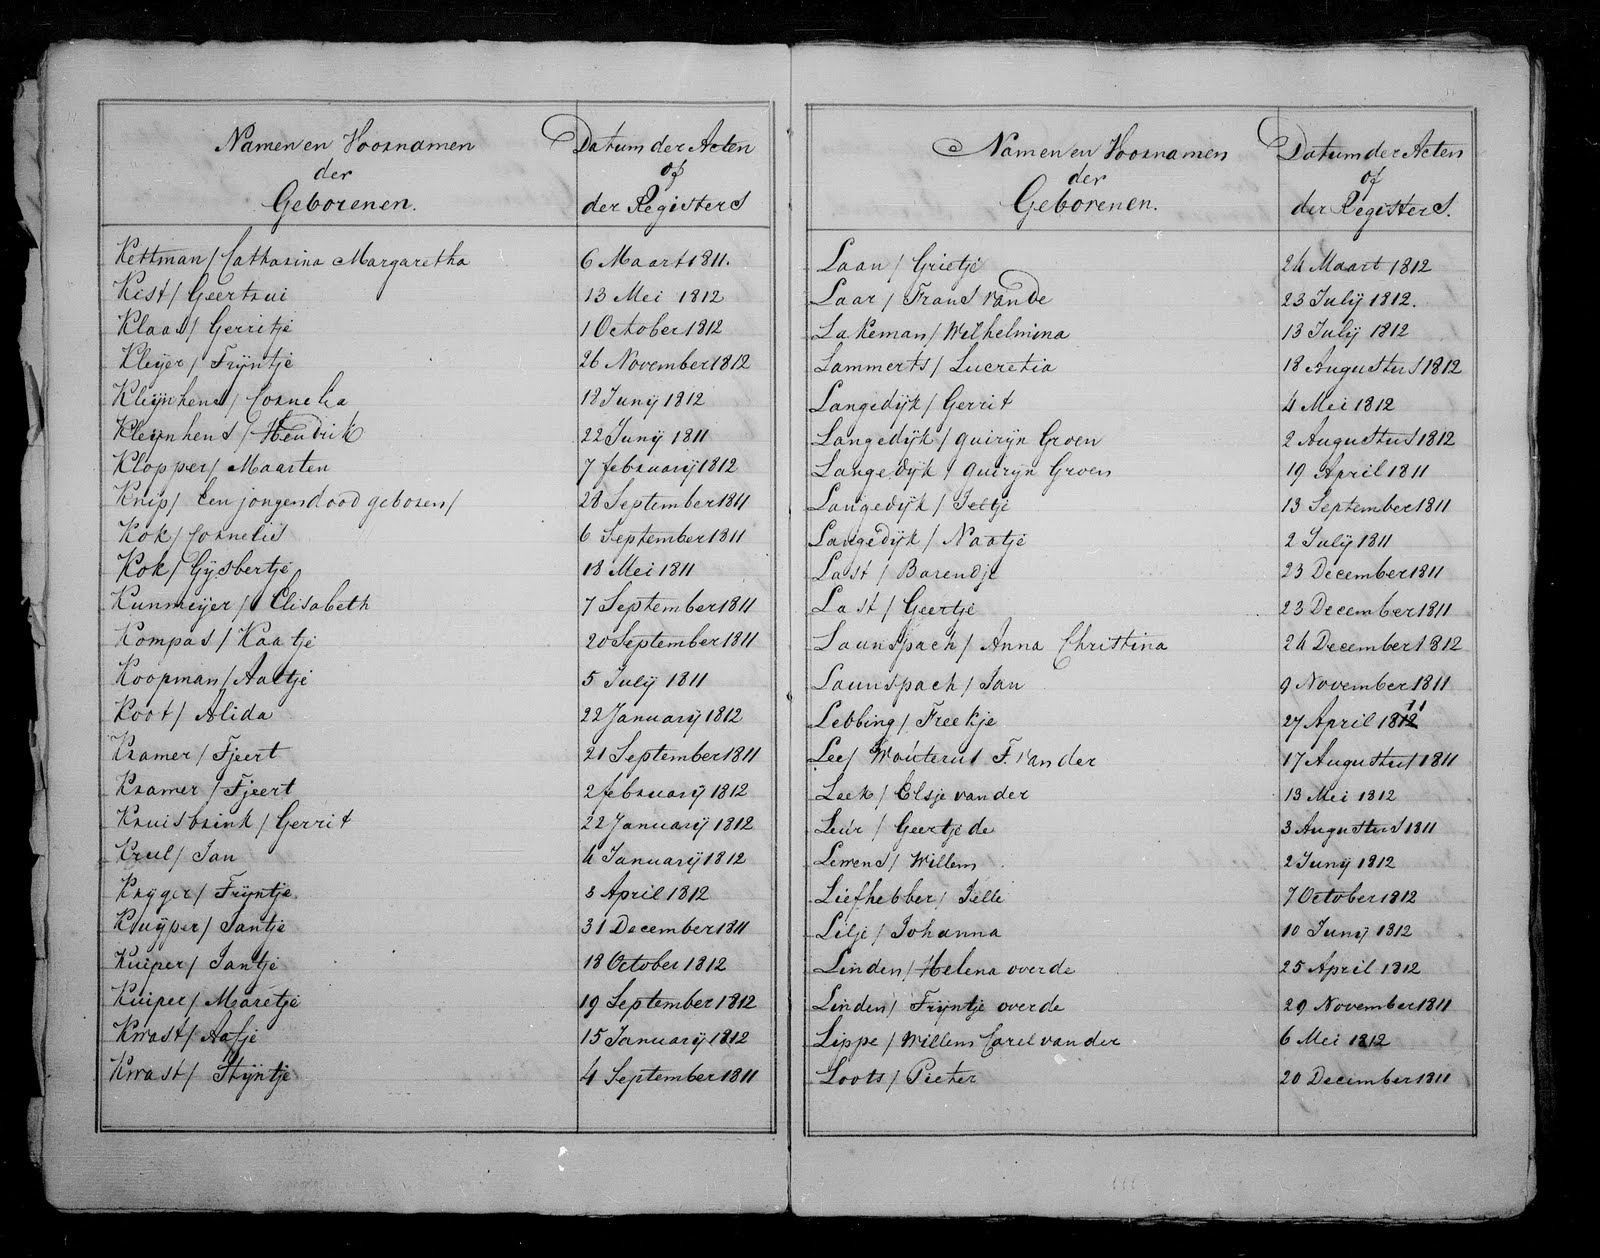 Namen en Voornamen
der
Geborenen.
Datum der Acten
of
der Registers
Kettman / Catharina Margaretha 6 Maart 1811.
Kist / Geertrui 13 Mei 1812
Klaas / Gerritje 1 October 1812
Kleijer / Trijntje 26 November 1812
Kleijnhens / Cornelia 18 Junij 1812
Kleijnhens / Hendrik 22 Junij 1811
Klopper / Maarten 7 februarij 1812
Knip / Een jongen dood geboren / 28 September 1811
Kok / Cornelis 6 September 1811
Kok / Gijsbertje 18 Mei 1811
Kunmeijer / Elisabeth 7 September 1811
Kompas / Kaatje 20 September 1811
Koopman / Aaltje 5 Julij 1811
Koot / Alida 22 Januarij 1812
Kramer / Tjeert 21 September 1811
Kramer / Tjeert 2 februarij 1812
Kruisbrink / Gerrit 22 Januarij 1812
Krul / Jan 4 Januarij 1812
Krijger / Trijntje 3 April 1812
Kuijper / Jantje 31 December 1811
Kuiper / Jantje 18 October 1812
Kuiper / Maretje 19 September 1812
Kwast / Aafje 15 Januarij 1812
Kwast / Stijntje 4 September 1811
Namen en Voornamen
der
Geborenen.
Datum der Acten
of
der Registers.
Laan / Grietje 24 Maart 1812
Laar / Frans van de 23 Julij 1812.
Lakeman / Wilhelmina 13 Julij 1812
Lammerts / Lucretia 18 Augustus 1812
Langedijk / Gerrit 4 Mei 1812
Langedijk / Quirijn Groen 2 Augustus 1812
Langedijk / Quirijn Groen 19 April 1811
Langedijk / Jeltje 13 September 1811
Langedijk / Naatje 2 Julij 1811
Last / Barendje 23 December 1811
Last / Geertje 23 December 1811
Launspach / Anna Christina 24 December 1812
Launspach / Jan 9 November 1811
Lebbing / Freekje 27 April 1811
Lee / Wouterus F. van der 17 Augustus 1811
Leek / Elsje van der 13 Mei 1812
Leur / Geertje de 3 Augustus 1811
Lewens / Willem 2 Junij 1812
Liefhebber / Jelle 7 October 1812
Lilje / Johanna 10 Junij 1812
Linden / Helena over de 25 April 1812
Linden / Trijntje over de 29 November 1811
Lippe / Willem Carel van der 6 Mei 1812
Loots / Pieter 20 December 1811